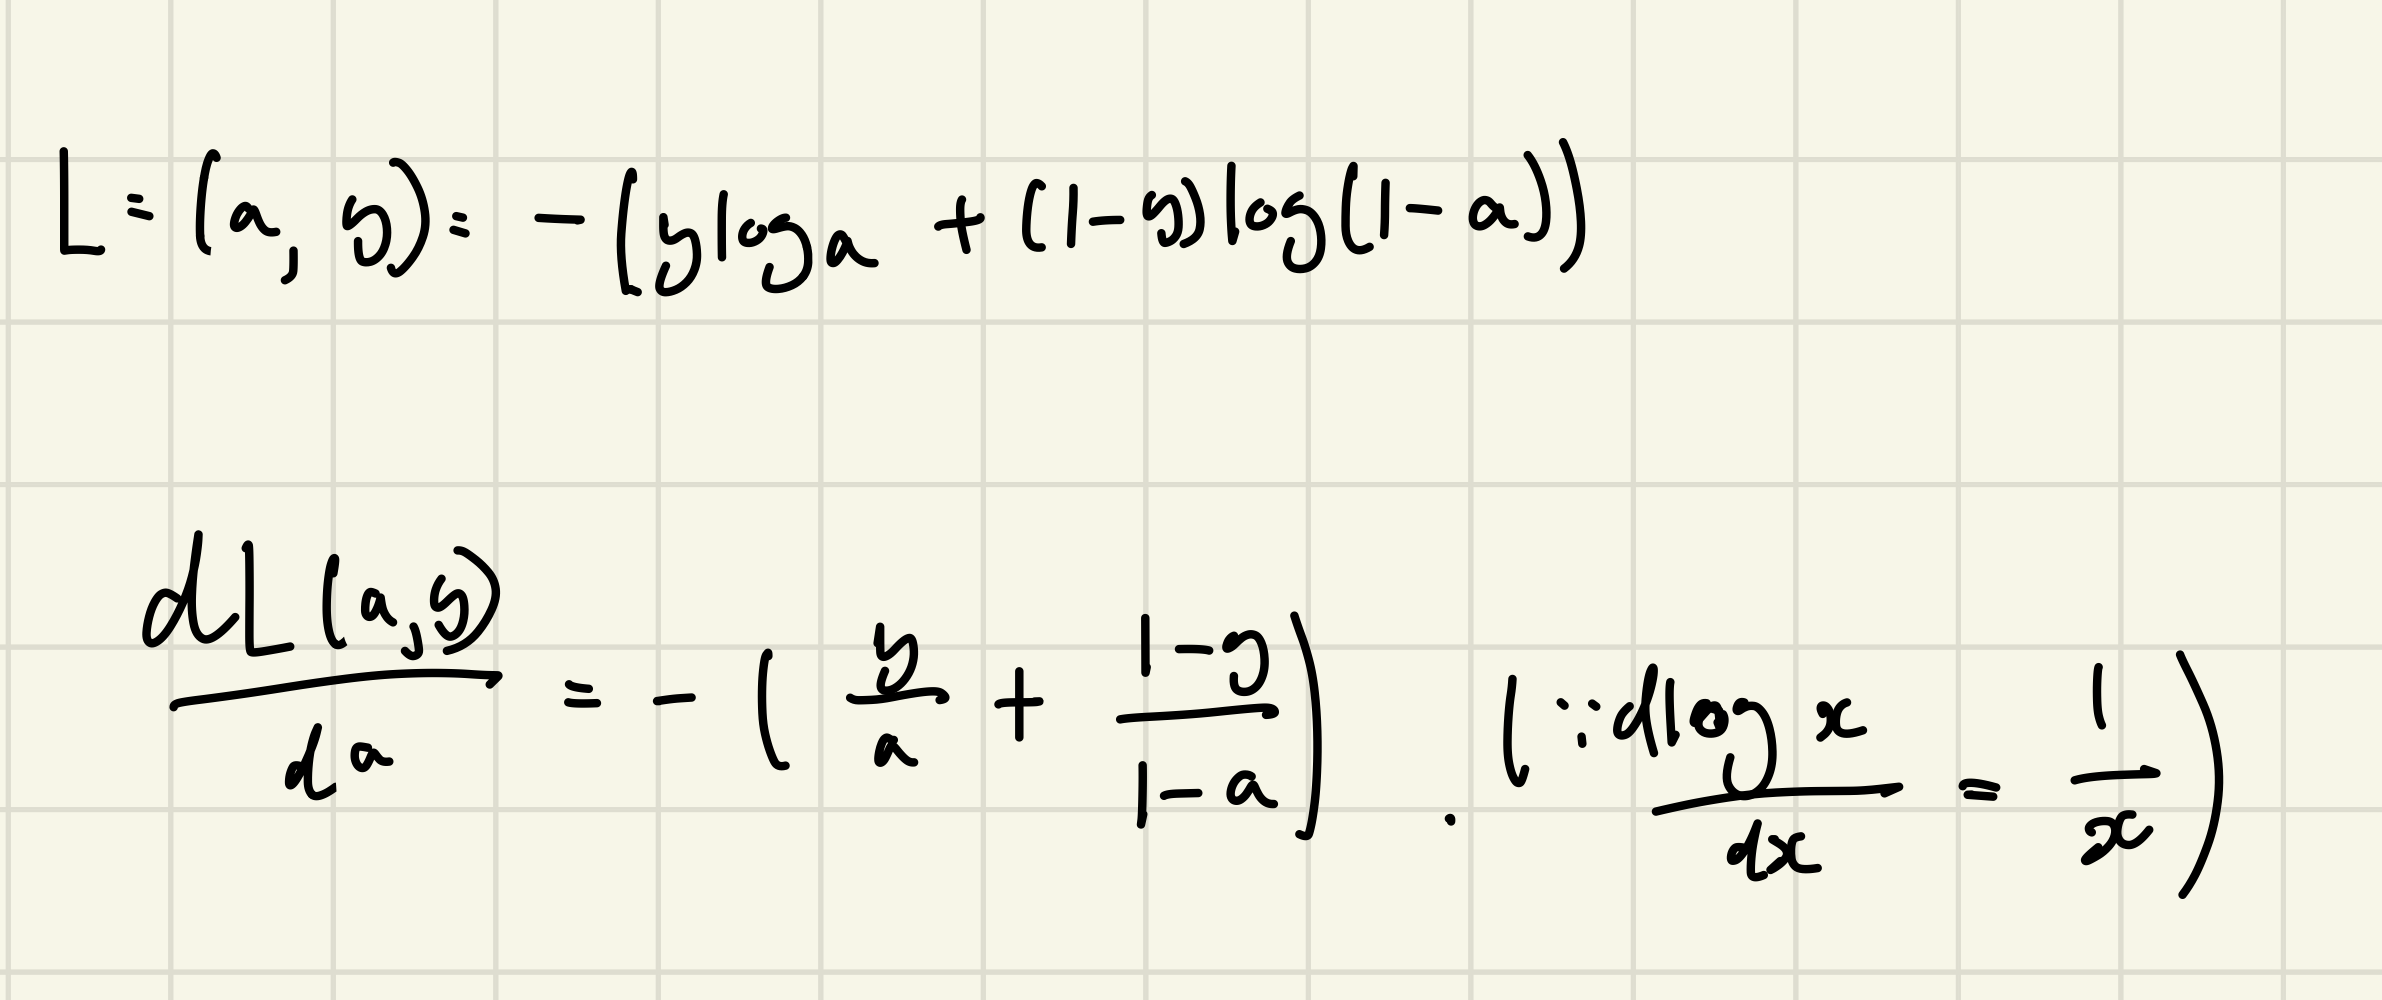 L = (a, y) = - (y log a + (1-y) log(1-a))
dL(a,y)/da = - ( y/a + (1-y)/(1-a) ) . ( ∵ dlog x/dx = 1/x )